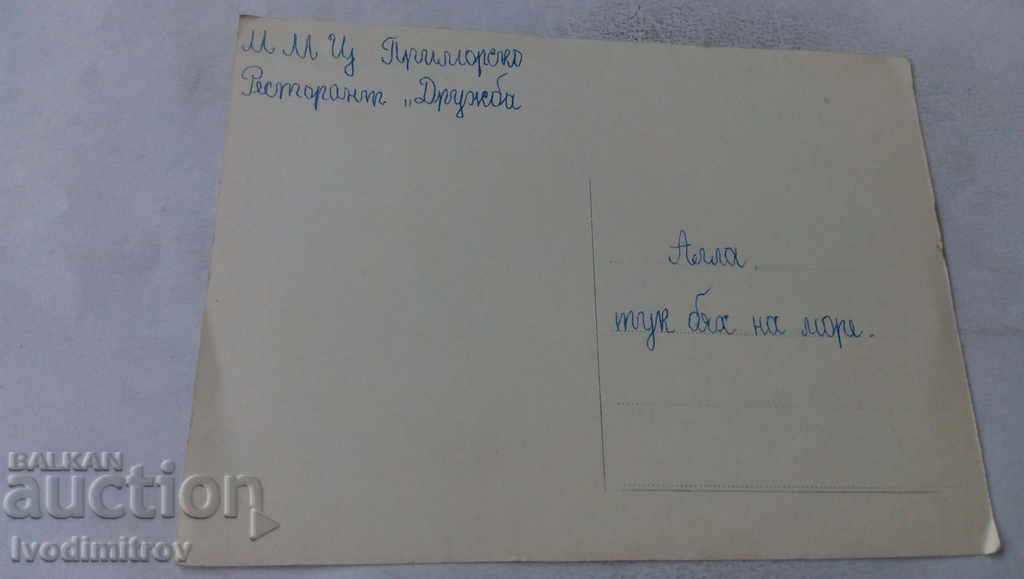 ММЦ Приморско
Ресторант „Дружба
Алла,
тук бях на море.
BALKAN
auction
Ivodimitrov